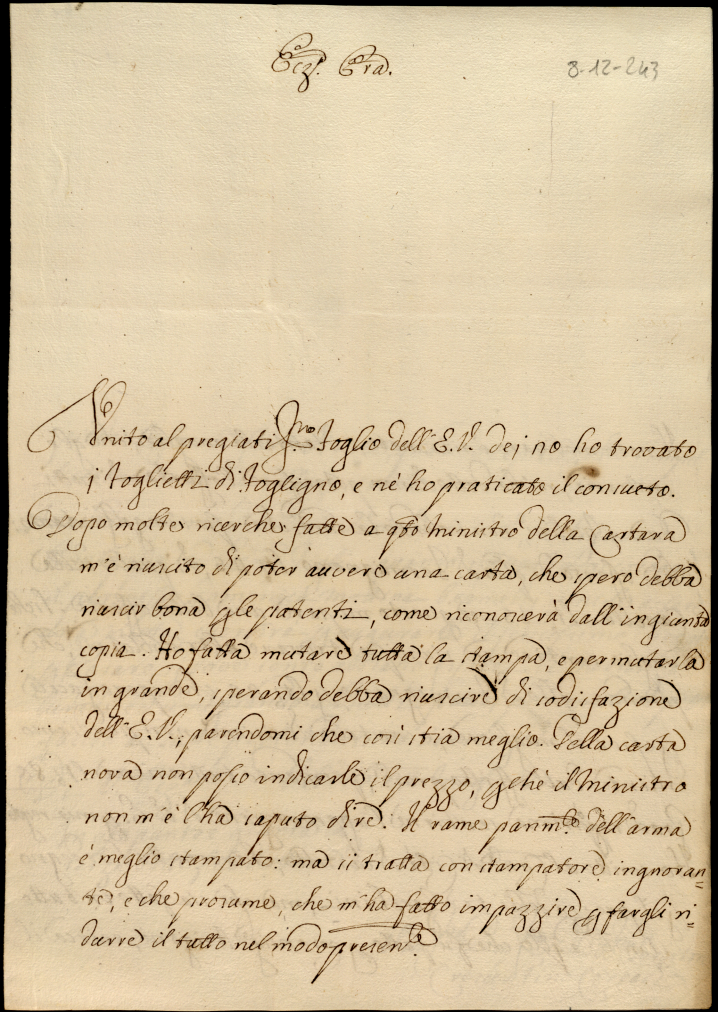 Ecz.ª Cra.
8-12-243
Unito al pregiatiss.mo foglio dell'E.V. dei no ho trovato
i foglietti di Fogligno, e nè ho praticato il consueto.
Dopo molte ricerche fatte a qto Ministro della Cartara
m'è riuscito di poter auvere una carta, che spero debba
riuscir bona p le patenti, come riconoscerà dall'ingiunta
copia. Ho fatta mutare tutta la stampa, e permutarla
in grande, sperando debba riuscire di sodisfazione
dell'E.V., parendomi che così stia meglio. Della carta
nova non posso indicarle il prezzo, p chè il Ministro
non m'è l'ha saputo dire. Il rame parim.te dell'arma
è meglio stampato: ma si tratta con stampatore ingnoran=
te, e che prosume, che m'ha fatto impazzire p fargli ri=
durre il tutto nel modo presen.te